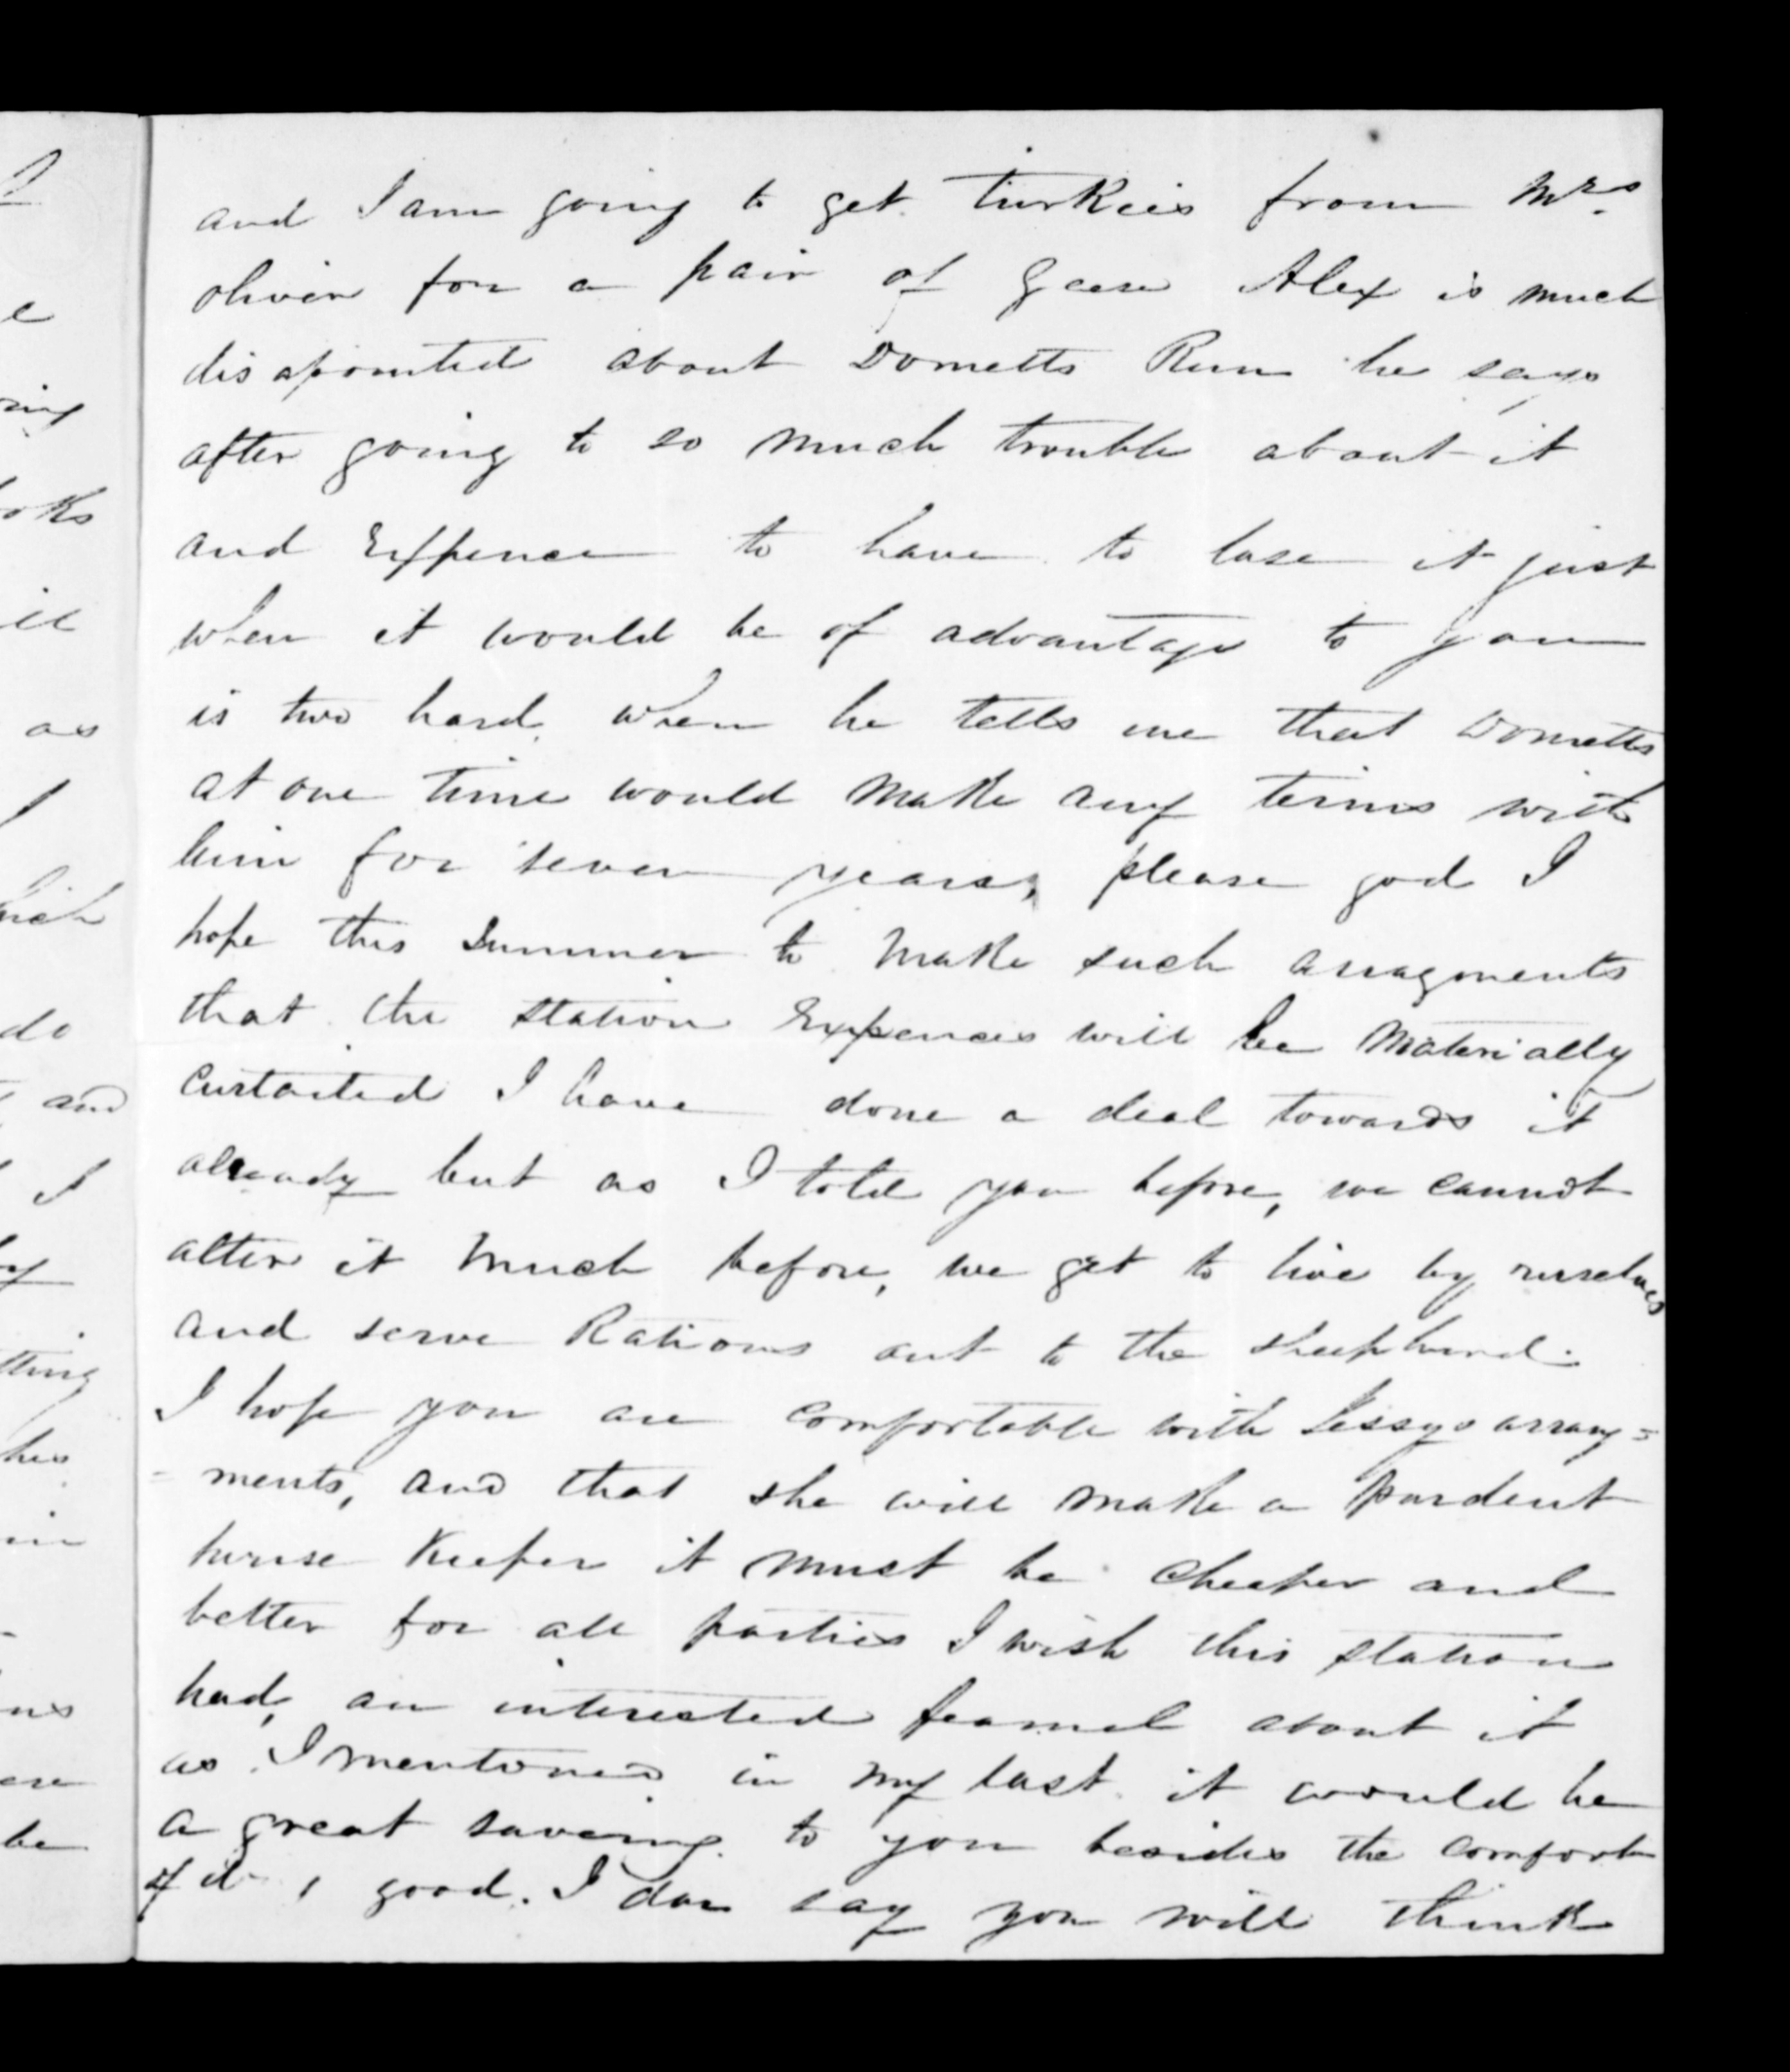 and I am going to get turkeies from Mrs.
oliver for a pair of Geese Alex is much
disapointed about Dometts Run he says
after going to so much trouble about it
and Exspence to have to lose it just
when it would be of advantage to you
is two hard, when he tells me that Dometts
at one time would make any terms with
him for seven years, please god I
hope this Summer to make such arragments
that the station Expences will be Materially
curtailed I have done a deal towards it
already but as I told you before, we cannot
alter it much before, we get to live by ourselves
and serve Rations out to the shepherd.
I hope you are comfortable with Jessys arrang=
=ments, and that she will make a purdent
house Keeper it must be cheaper and
better for all parties I wish this station
had, an interested feamel about it
as I mentioned in my last. it would be
a great saveing. to you besides the comfort
of it good. I dare say you will think